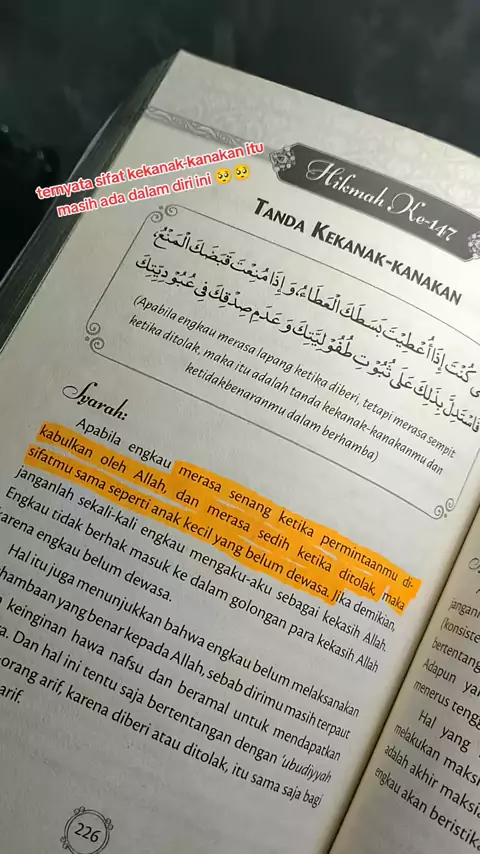 ternyata sifat kekanak-kanakan itu
masih ada dalam diri ini 🥺🥺
Hikmah Ke-147
TANDA KEKANAK-KANAKAN
كُنْتَ إِذَا أُعْطِيْتَ بَسَطَكَ الْعَطَاءُ، وَ إِذَا مُنِعْتَ قَبَضَكَ الْمَنْعُ
فَاسْتَدِلَّ بِذَلِكَ عَلَى ثُبُوْتِ طُفُوْلِيَّتِكَ وَ عَدَمِ صِدْقِكَ فِي عُبُوْدِيَّتِكَ
(Apabila engkau merasa lapang ketika diberi, tetapi merasa sempit
ketika ditolak, maka itu adalah tanda kekanak-kanakanmu dan
ketidakbenaranmu dalam berhamba)
Syarah:
Apabila engkau merasa senang ketika permintaanmu di-
kabulkan oleh Allah, dan merasa sedih ketika ditolak, maka
sifatmu sama seperti anak kecil yang belum dewasa. Jika demikian,
janganlah sekali-kali engkau mengaku-aku sebagai kekasih Allah.
Engkau tidak berhak masuk ke dalam golongan para kekasih Allah
karena engkau belum dewasa.
Hal itu juga menunjukkan bahwa engkau belum melaksanakan
hambaan yang benar kepada Allah, sebab dirimu masih terpaut
keinginan hawa nafsu dan beramal untuk mendapatkan
a. Dan hal ini tentu saja bertentangan dengan 'ubudiyyah
orang arif, karena diberi atau ditolak, itu sama saja bagi
arif.
226
jangan
(konsiste
bertentang
Adapun ya
menerus tengg
Hal yang
melakukan maksi
adalah akhir maksia
engkau akan beristik